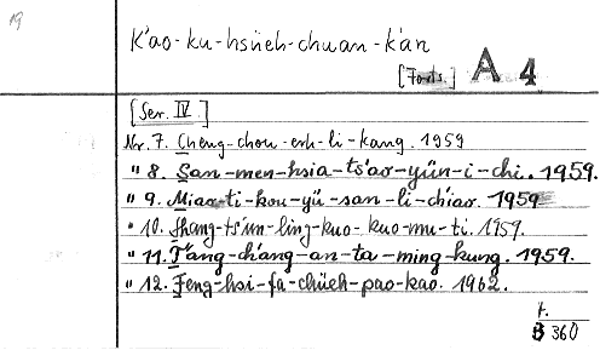 19
K'ao-ku-hsüeh-chuan-k'an
[Forts.] A 4
[Ser. IV.]
Nr. 7. Cheng-chou-erh-li-kang. 1959
" 8. San-men-hsia-ts'ao-yün-i-chi. 1959.
" 9. Miao-ti-kou-yü-san-li-ch'iao. 1959
" 10. Shang-ts'un-ling-kuo-kuo-mu-ti. 1959.
" 11. T'ang-ch'ang-an-ta-ming-kung. 1959.
" 12. Feng-hsi-fa-chüeh-pao-kao. 1962.
7.
B 360